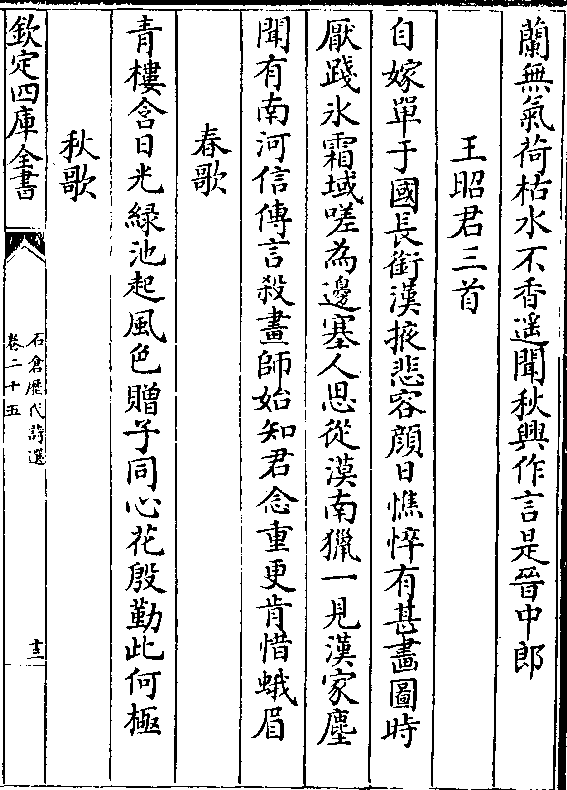 蘭無氣荷枯水不香遥聞秋興作言是晉中郎
王昭君三首
自嫁單于國長銜漢掖悲容顔日憔悴有甚畫圖時
厭踐氷霜域嗟為邊塞人思從漠南獵一見漢家塵
聞有南河信傳言殺畫師始知君念重更肯惜蛾眉
春歌
青樓含日光綠池起風色贈子同心花殷勤此何極
秋歌
欽定四庫全書
石倉歷代詩選
卷二十五
十三